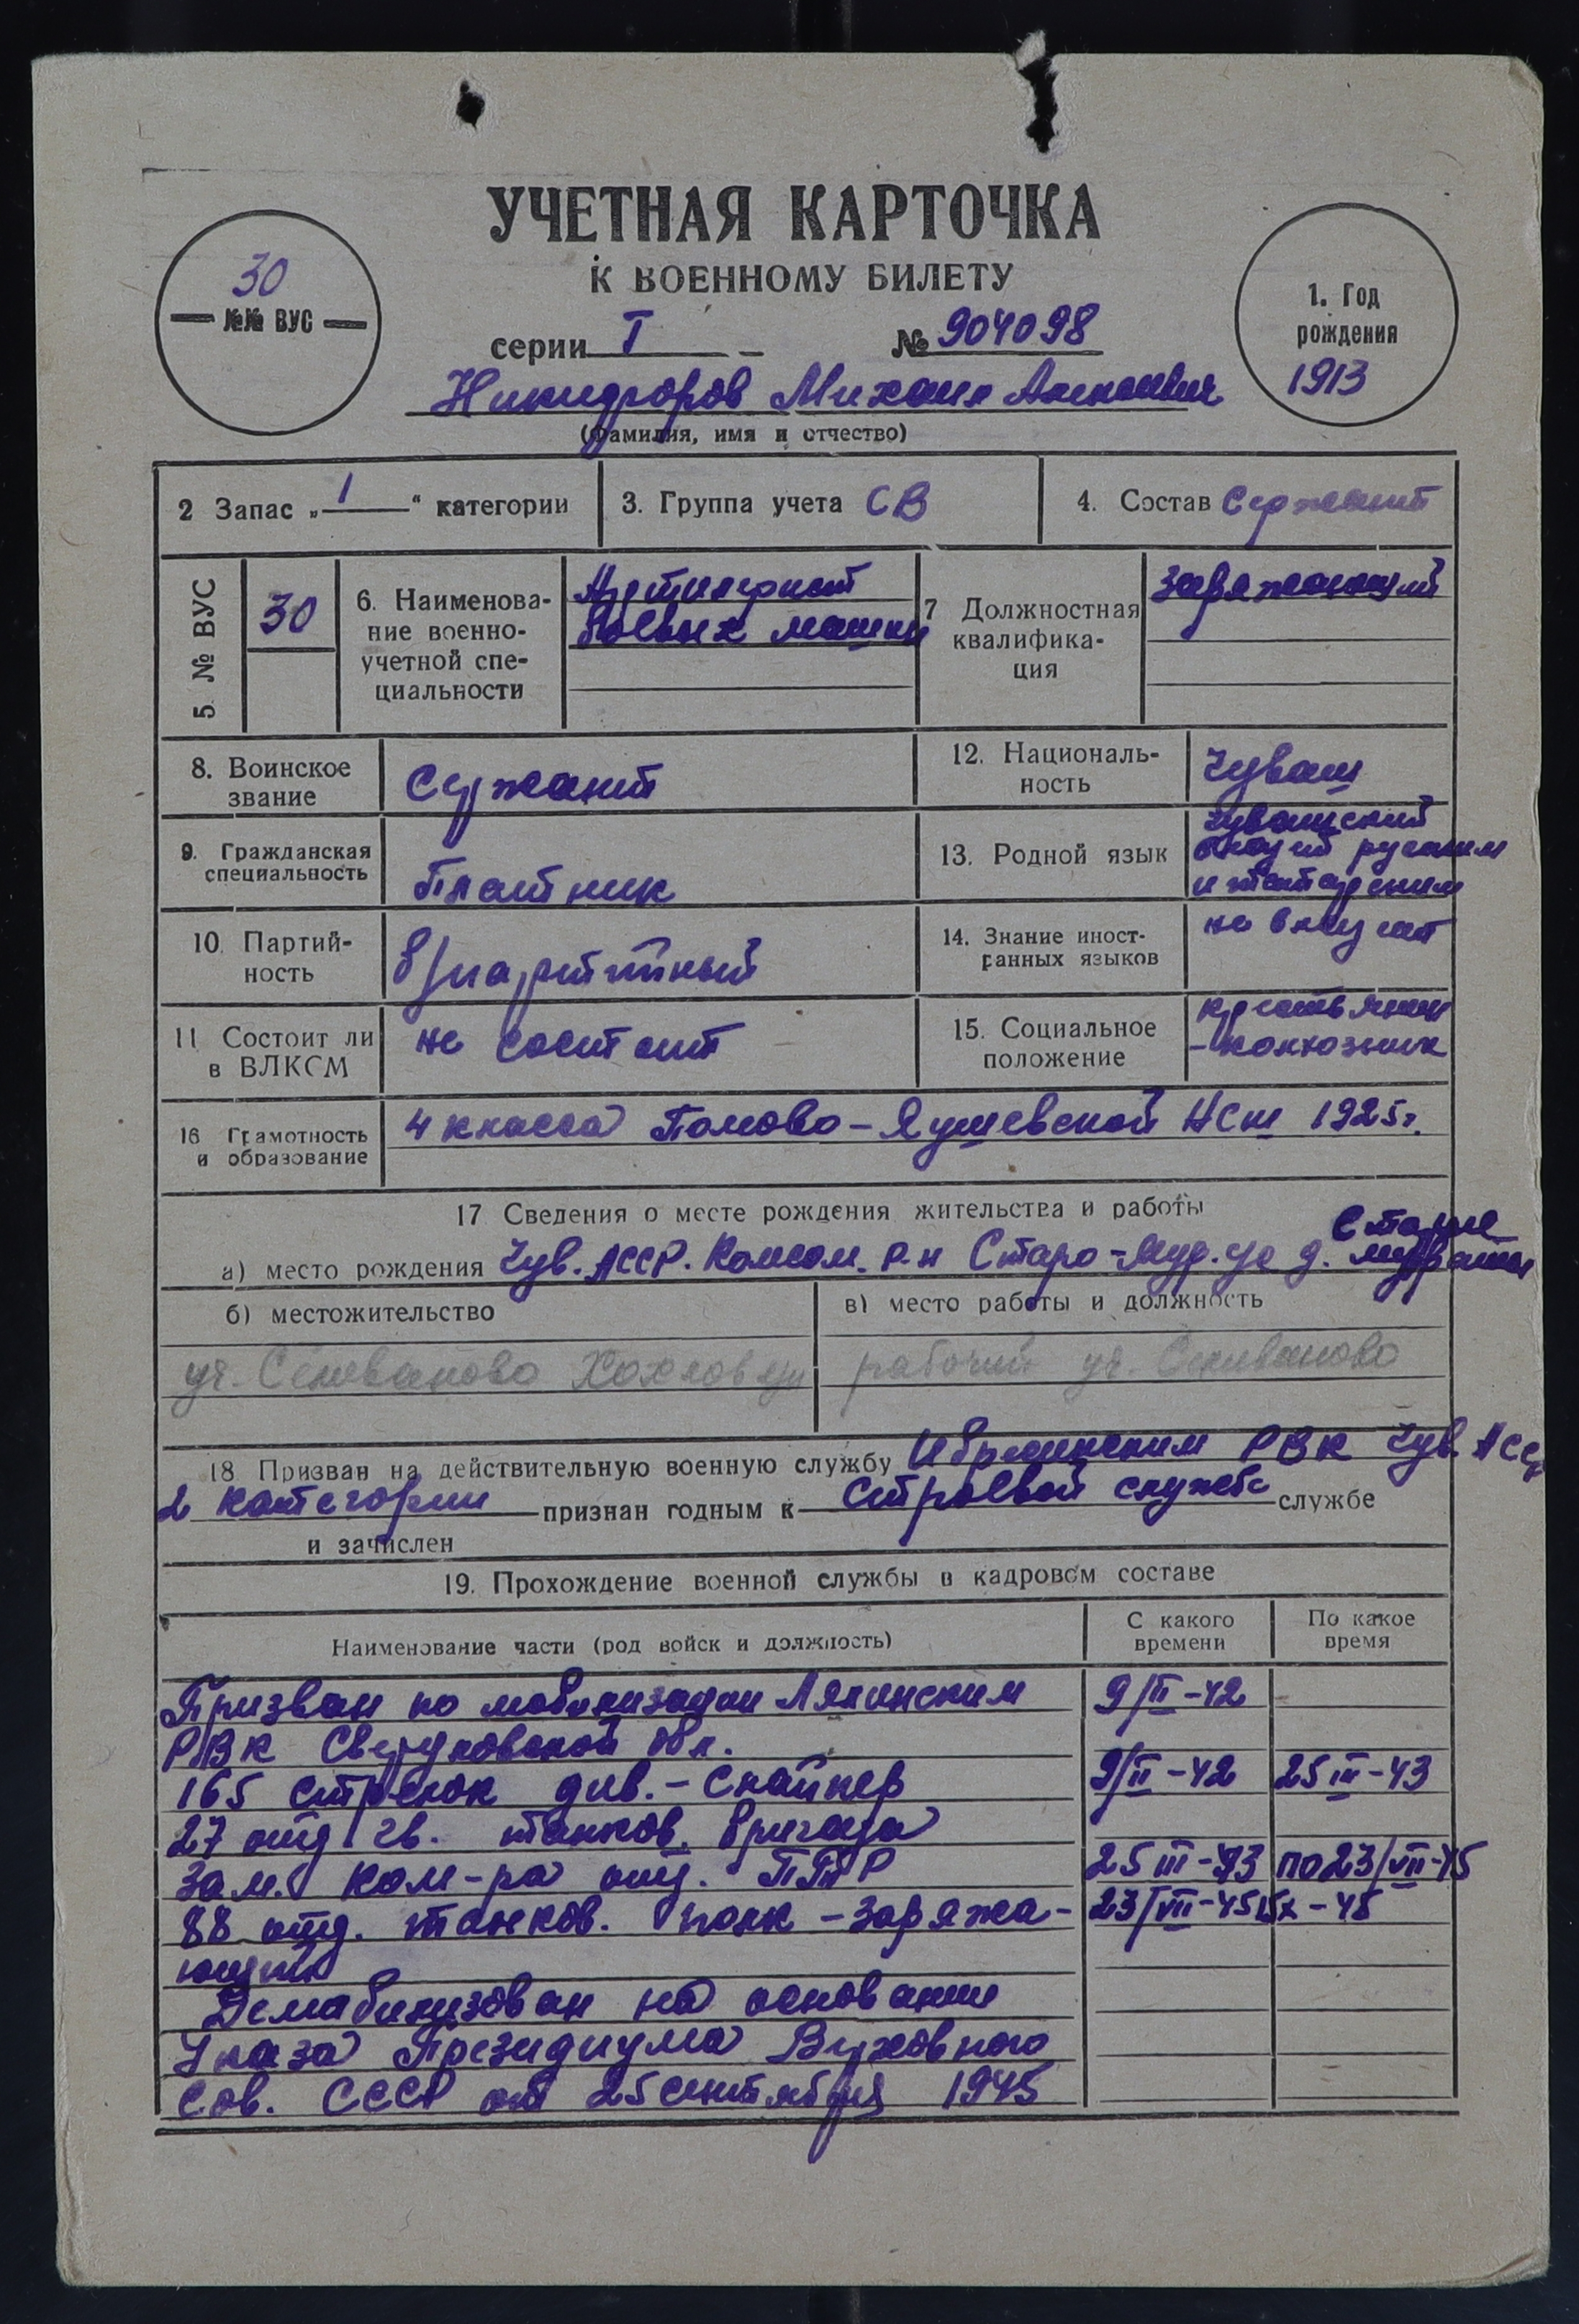 УЧЕТНАЯ КАРТОЧКА
К ВОЕННОМУ БИЛЕТУ
30
№№ ВУС
серии Т № 904098
1. Год
рождения
1913
Никифоров Михаил
(фамилия, имя и отчество)
2 Запас „1“ категории
3. Группа учета СВ
4. Состав Сержант
5. № ВУС
30
6. Наименова-
ние военно-
учетной спе-
циальности
Артилерист
боевых машин
7 Должностная
квалифика-
ция
Заряжающий
8. Воинское
звание
Сержант
12. Националь-
ность
Чуваш
9. Гражданская
специальность
Плотник
13. Родной язык
Чувашский
русским
и татарским
10. Партий-
ность
б/партийный
14. Знание иност-
ранных языков
не владеет
11 Состоит ли
в ВЛКСМ
не состоит
15. Социальное
положение
крестьянин
-колхозник
16 Грамотность
и образование
4 класса Полово-Яушевской НСш 1925г.
17 Сведения о месте рождения жительства и работы
а) место рождения Чув. АССР. Комсом. р-н Старо-Мур. д. Старые
б) местожительство
уч. Селиваново
в) место работы и должность
рабочий уч. Селиваново
18 Призван на действительную военную службу Ибресинским РВК Чув АССР
2 категории признан годным к строевой службе службе
и зачислен
19. Прохождение военной службы в кадровом составе
Наименование части (род войск и должность)
С какого
времени
По какое
время
Призван по мобилизации Лялинским 9/II-42
РВК Свердловской обл.
165 стрелок див. - снайпер 9/II-42 25 III-43
27 отд гв. танков. бригада
Зам. ком-ра отд. ПТР 25 III-43 по 23/VII-45
88 отд. танков. полк - заряжа- 23/VII-45
ющий
Демабилизован на основании
Указа Президиума Верховного
Сов. СССР от 25 сентября 1945